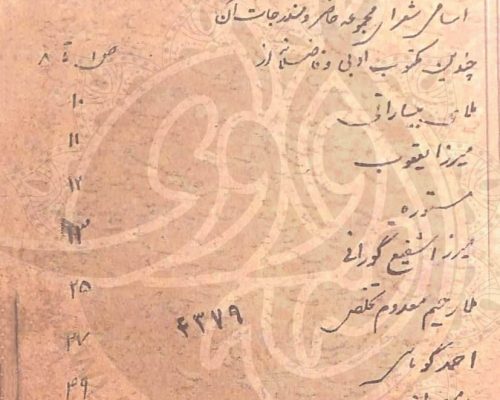 اسامی شعرای مجموعه حاضر و مندرجات آن
چندین مکتوب ادبی و فاضلانه از ص ۱ تا ۸
ملای بیسارانی ۱۰
میرزا یعقوب ۱۱
مستوره ۱۲
میرزا شفیع گورانی ۱۳
ملا رحیم معدوم تخلص ۲۵
۴۳۷۹
احمد کوماسی ۴۷
۴۹